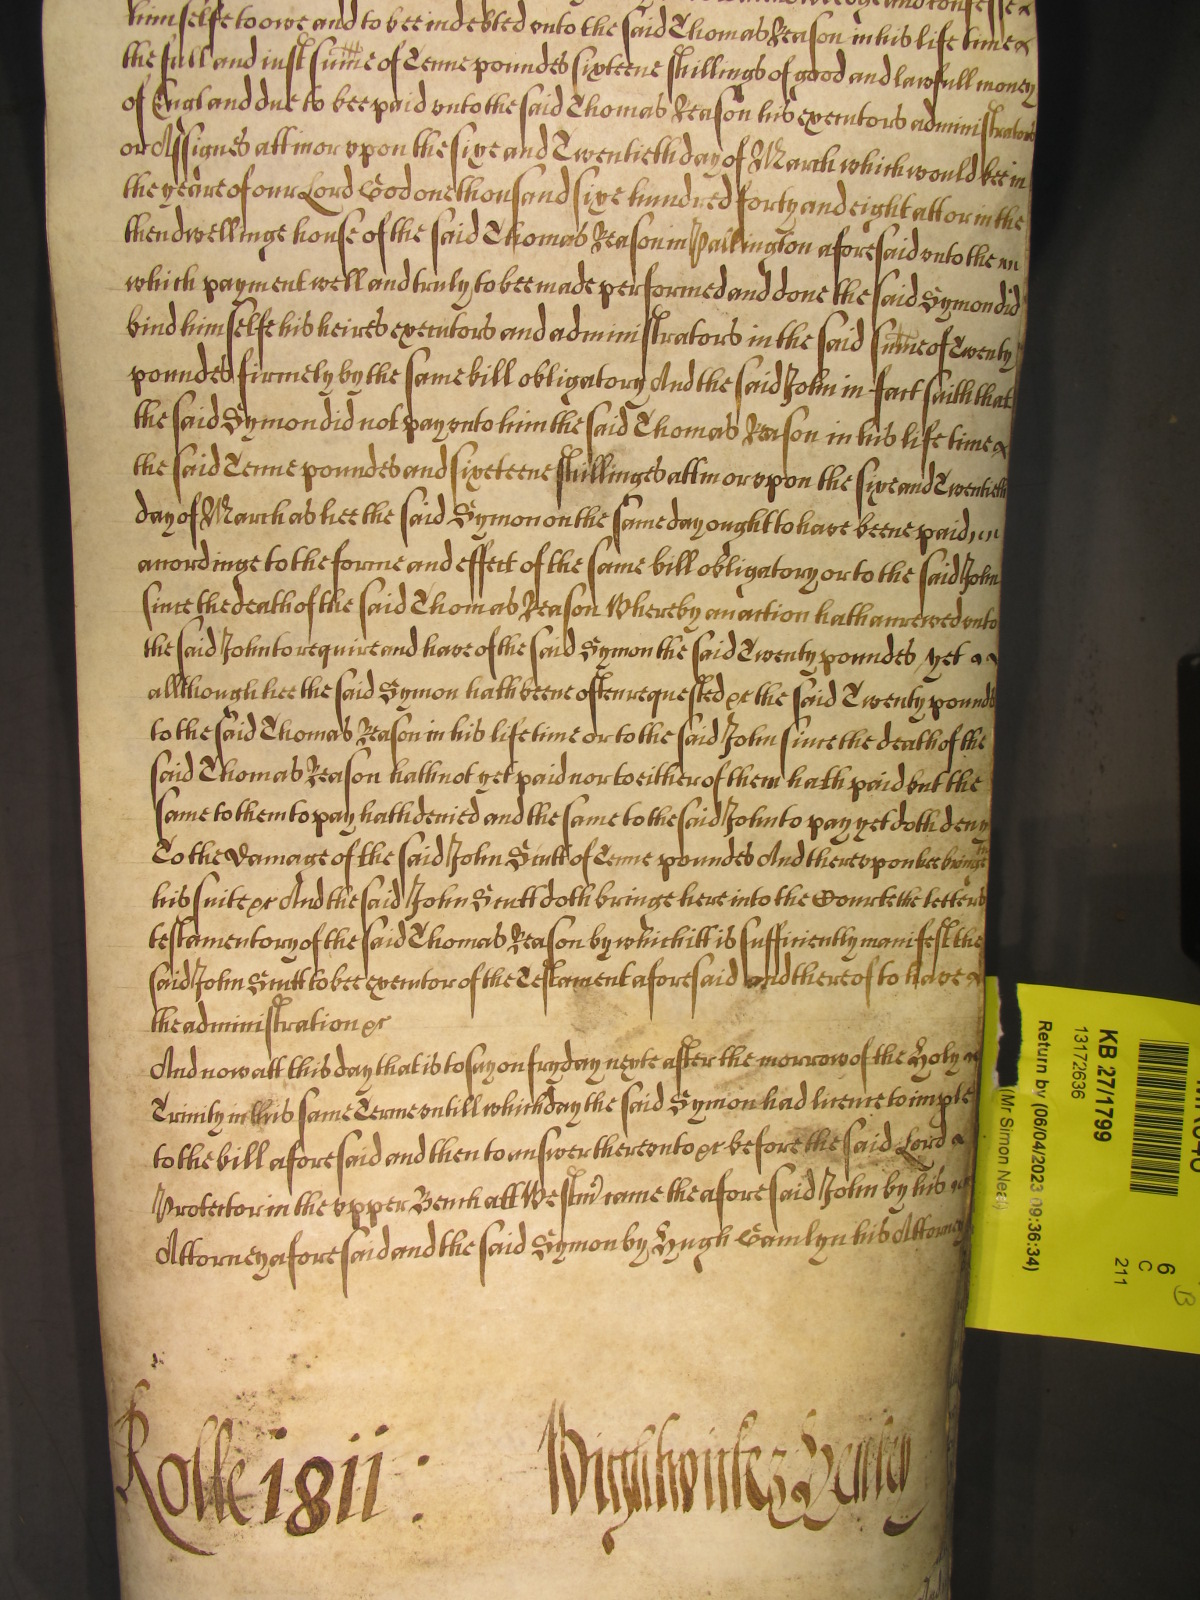 himselfe to owe and to bee indebted unto the said Thomas Reason in his life time
the full and iust sum̄e of Tenne poundes sixteene shillings of good and lawfull money
of England due to bee paid unto the said Thomas Reason his executors administrators
or Assignes att in or upon the sixe and Twentieth day of March which would bee in
the yeare of our Lord God one thousand sixe hundred forty and eight att or in the
then dwellinge house of the said Thomas Reason in aforesaid unto the
which payment well and truly to bee made performed and done the said Symon did
bind himselfe his heires executors and administrators in the said sum̄e of Twenty
poundes firmely by the same bill obligatory And the said John in fact saith that
the said Symon did not pay unto him the said Thomas Reason in his life time
the said Tenne poundes and sixeteene shillinges att in or upon the sixe and Twentieth
day of March as hee the said Symon on the same day ought to have beene paid
accordinge to the forme and effect of the same bill obligatory or to the said John
since the death of the said Thomas Reason Whereby an action hath accrewed unto
the said John to require and have of the said Symon the said Twenty poundes yet
allthough hee the said Symon hath beene often requested &c the said Twenty pounds
to the said Thomas Reason in his life time or to the said John since the death of the
said Thomas Reason hath not yet paid nor to either of them hath paid but the
same to them to pay hath denied and the same to the said John to pay yet doth deny
To the Damage of the said John Scutt of Tenne poundes And thereupon hee bringeth
his suite &c And the said John Scutt doth bringe here into the Courte the letters
testamentory of the said Thomas Reason by which itt is sufficiently manifest the
said John Scutt to bee executor of the Testament aforesaid and thereof to have
the administration &c
And now att this day that is to say on fryday nexte after the morrow of the Holy
Trinity in this same Terme untill which day the said Symon had licence to imple
to the bill aforesaid and then to answer thereunto &c before the said Lord
Protector in the upper Bench att Westm̄ came the aforesaid John by his
Attorney aforesaid and the said Symon by Hugh Camlyn his Attorney
Rolle 1811 : Wightwicke &
KB 27/1799
13172636
Return by (06/04/2023 09:36:34)
(Mr Simon Neal)
6
C
211
B